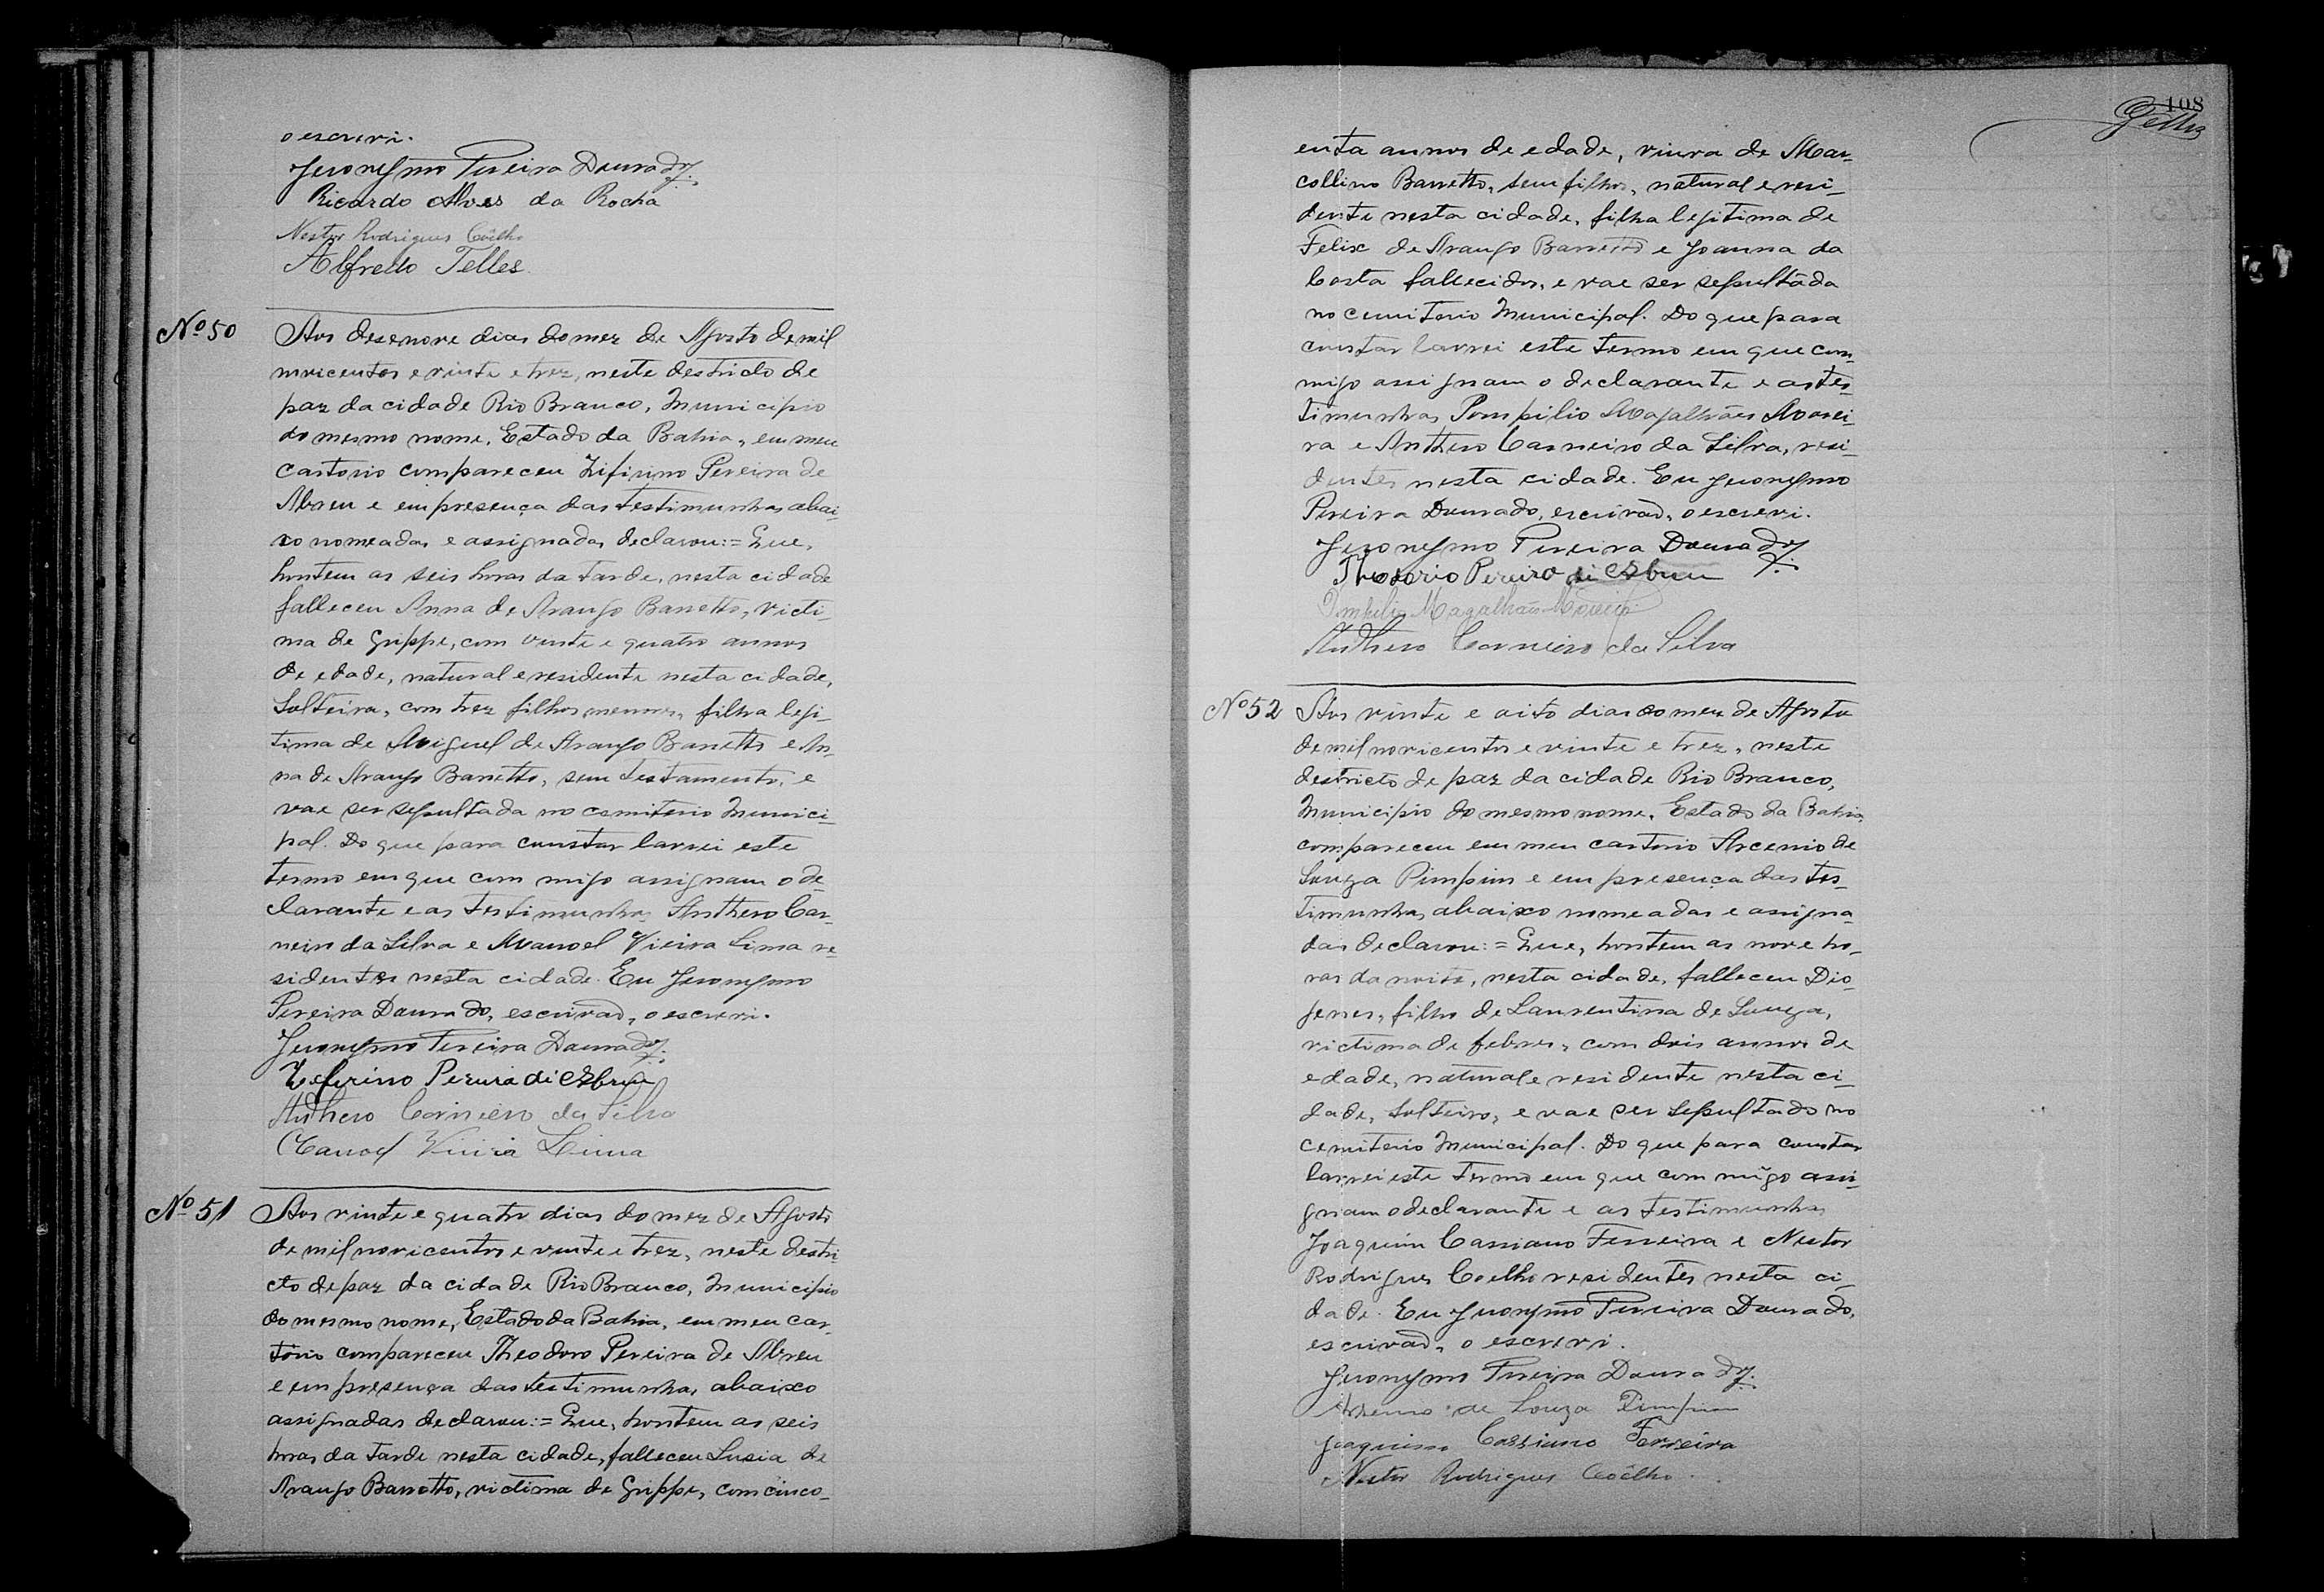 o escrevi.
Jeronymo Pereira Dourado
Ricardo Alves da Rocha
Nestor Rodrigues Coêlho
Alfredo Telles.
Nº 50
Aos desenove dias do mez de Agosto de mil
novicentos e vinte e trez, neste destricto de
paz da cidade Rio Branco, Municipio
do mesmo nome, Estado da Bahia, em meu
cartorio compareceu Zifirino Pereira de
Abreu e em presença das testimunhas abai-
xo nomeadas e assignadas declarou:= Que,
hontem as seis horas da tarde, nesta cidade
falleceu Anna de Araujo Barretto, victi-
ma de Grippe, com vinte e quatro annos
de edade, natural e residente nesta cidade,
Solteira, com trez filhos menores, filha legi-
tima de Miguel de Araujo Barretto e An-
na de Araujo Barretto, sem testamento, e
vae ser sepultada no cemiterio Munici-
pal. Do que para constar lavrei este
termo em que com migo assignam o de-
clarante e as testimunhas Anthero Car-
neiro da Silva e Manoel Vieira Lima re-
sidentes nesta cidade. Eu Jeronymo
Pereira Dourado, escrivão, o escrevi.
Jeronymo Pereira Dourado
Zeferino Pereira di Abreu
Anthero Carneiro da Silva
Manoel Vieira Lima
Nº 51
Aos vinte e quatro dias do mez de Agosto
de mil novicentos e vinte e trez, neste destri-
cto de paz da cidade Rio Branco, Municipio
do mesmo nome, Estado da Bahia, em meu car-
torio compareceu Theodoro Pereira de Abreu
e em presença das testimunhas abaixo
assignadas declarou:= Que, hontem as seis
horas da tarde nesta cidade, falleceu Lusia de
Araujo Barretto, victima de Grippe, com cinco-
108
enta annos de edade, viuva de Mar-
collino Barretto, sem filhos, natural e resi-
dente nesta cidade, filha legitima de
Felix de Araujo Barretto e Joanna da
Costa fallecidos, e vae ser sepultada
no cemiterio Municipal. Do que para
constar lavrei este termo em que com
migo assignam o declarante e as tes-
timunhas Pompilio Magalhães Morei-
ra e Anthero Carneiro da Silva, resi-
dentes nesta cidade. Eu Jeronymo
Pereira Dourado, escrivão, o escrevi.
Jeronymo Pereira Dourado
Theodorio Pereira di Abreu
Pompilio Magalhães Moreira
Anthero Carneiro da Silva
Nº 52
Aos vinte e oito dias do mez de Agosto
de mil novicentos e vinte e trez, neste
destricto de paz da cidade Rio Branco,
Municipio do mesmo nome, Estado da Bahia,
compareceu em meu cartorio Arcenio de
Souza Pimpim e em presença das tes-
timunhas abaixo nomeadas e assigna-
das declarou:= Que, hontem as nove ho-
ras da noite, nesta cidade, falleceu Dio-
genes, filho de Laurentina de Souza,
victima de febres, com dois annos de
edade, natural e residente nesta ci-
dade, Solteiro, e vae ser sepultado no
cemiterio Municipal. Do que para constar
lavrei este termo em que com migo assi-
gnam o declarante e as testimunhas
Joaquim Cassiano Ferreira e Nestor
Rodrigues Coelho residentes nesta ci-
dade. Eu Jeronymo Pereira Dourado,
escrivão, o escrevi.
Jeronymo Pereira Dourado
Arsenio de Souza Pimpim
Joaquim Cassiano Ferreira
Nestor Rodrigues Coêlho.